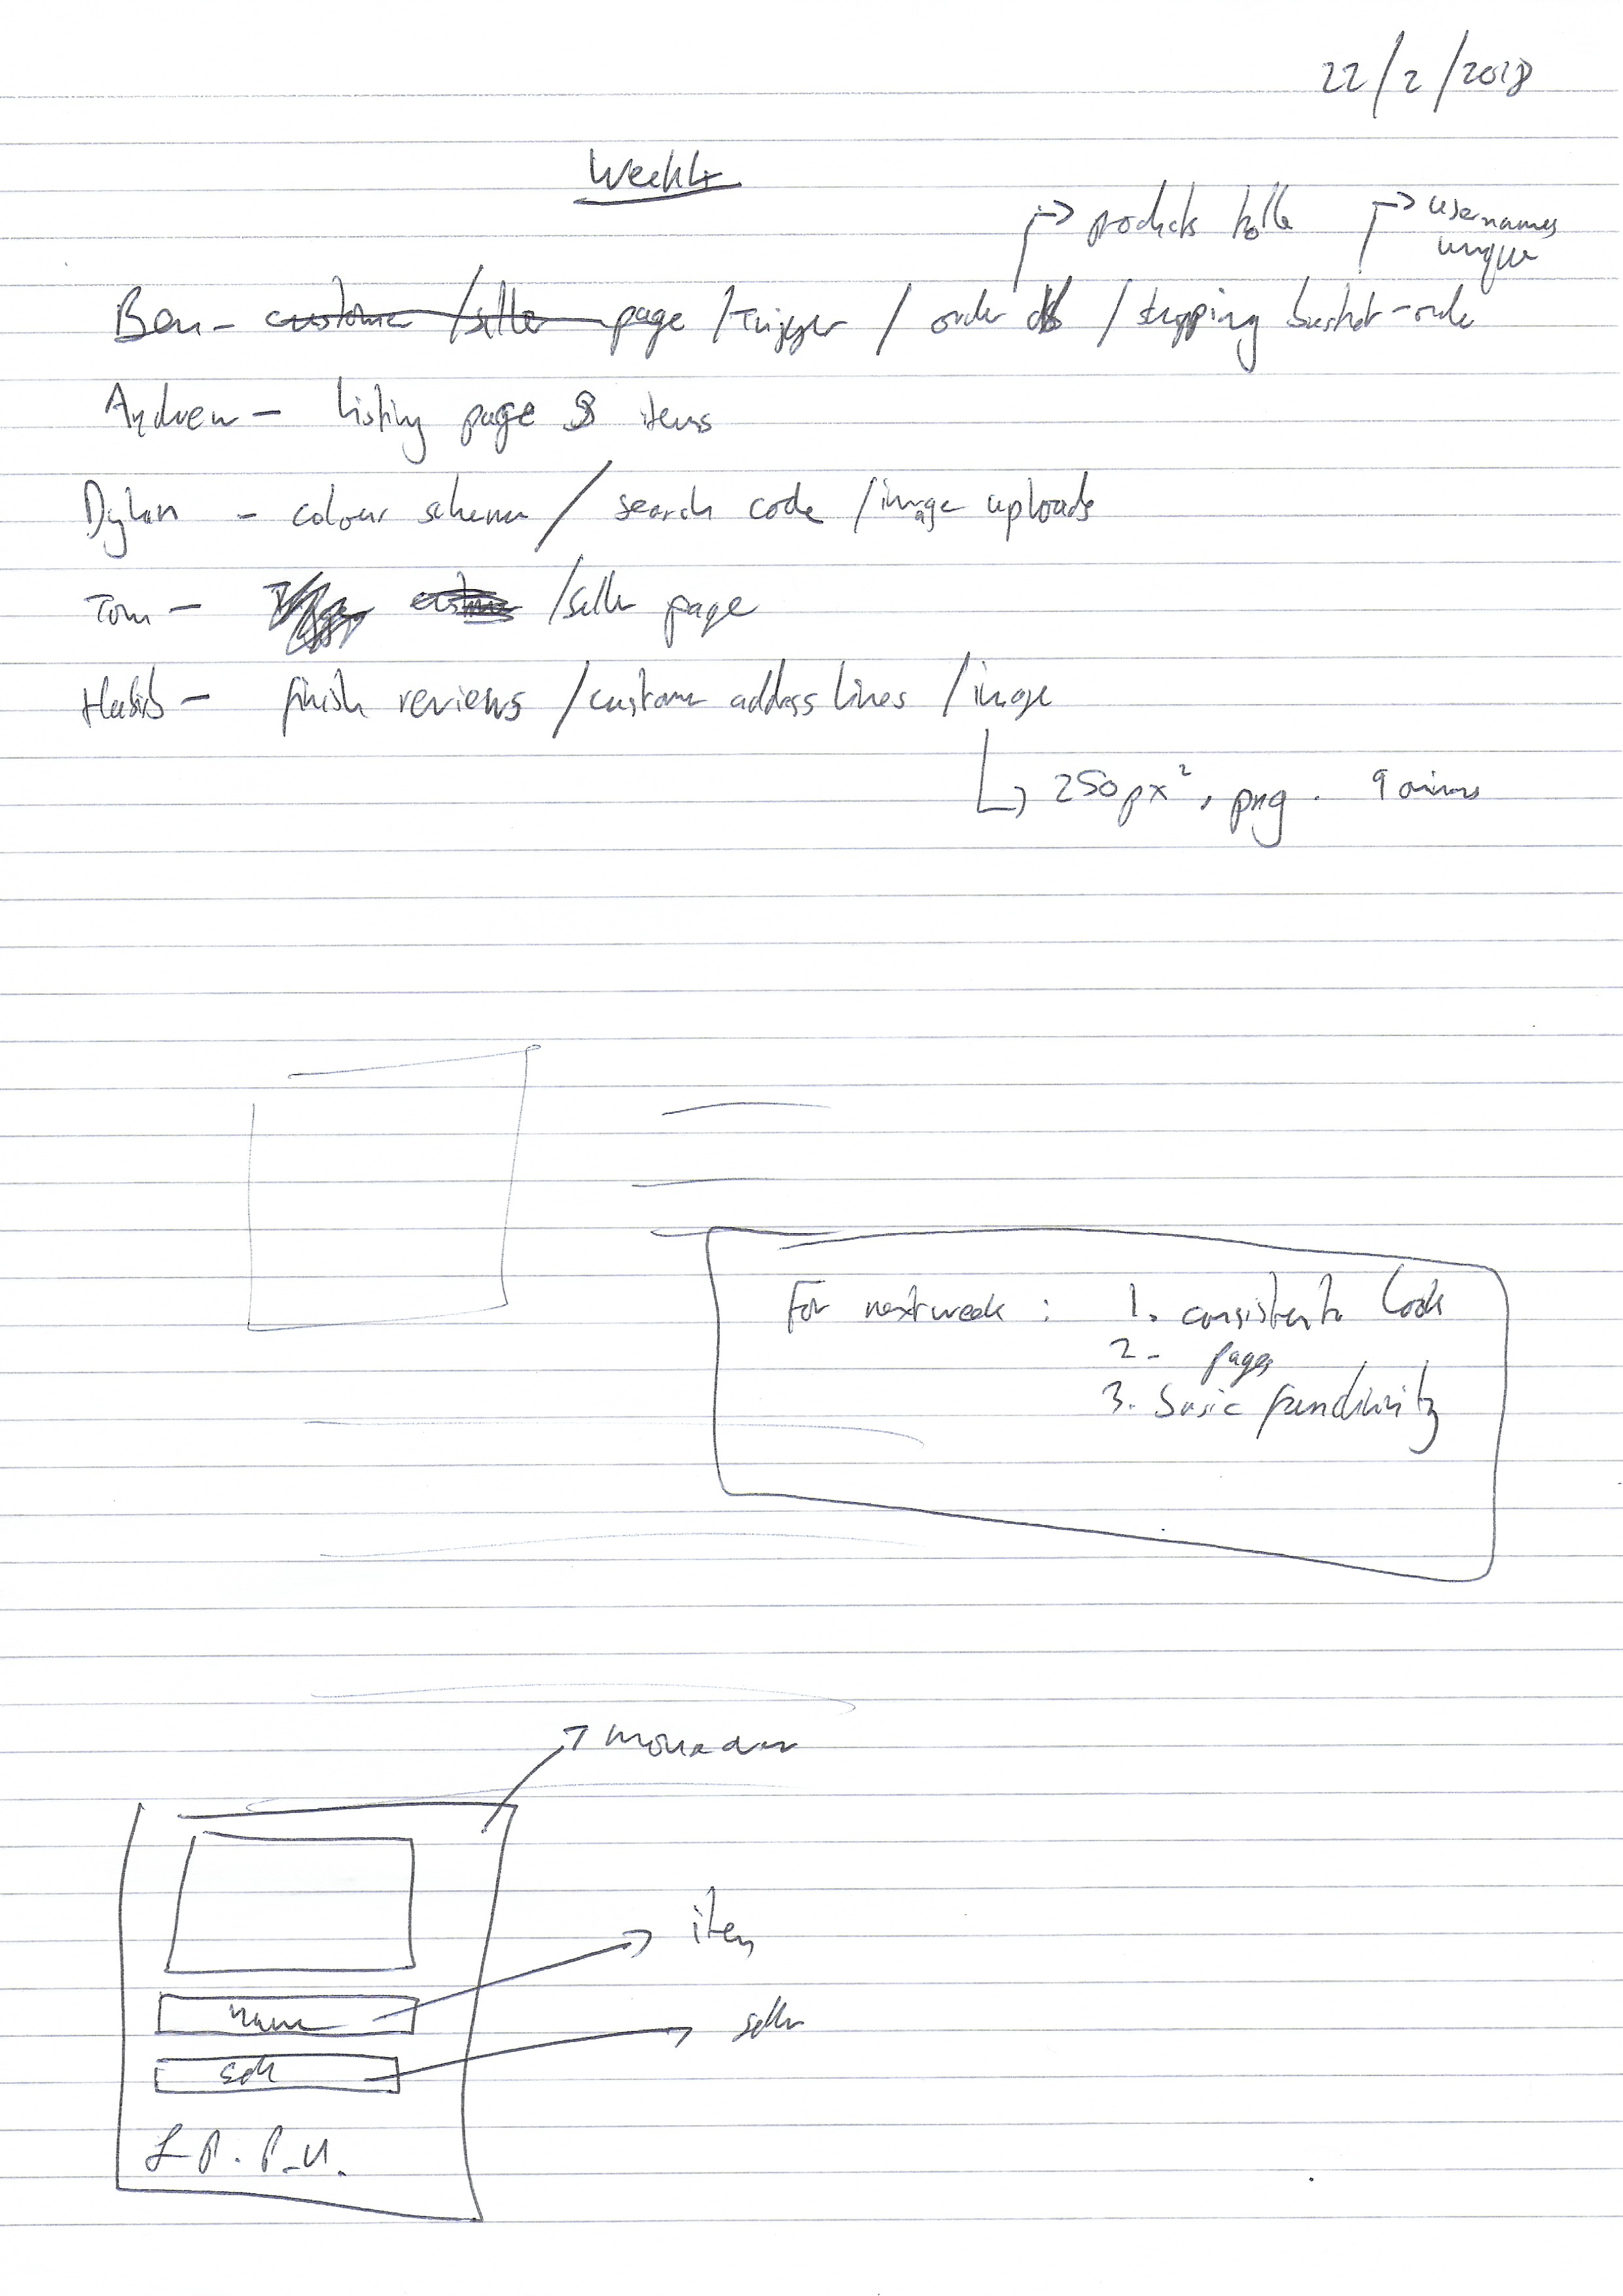 22/2/2018
Week 4
products table
usernames
unique
Ben - customer / seller page / Trigger / order db / shopping basket - order
Andrew - listing page & items
Dylan - colour scheme / search code / image uploads
Tom - / seller page
Habib - finish reviews / customer address lines / image
250px², png. 9
For next week : 1. consistent look
2. pages
3. basic functionality
item
name
seller
sell
£ P. P.U.